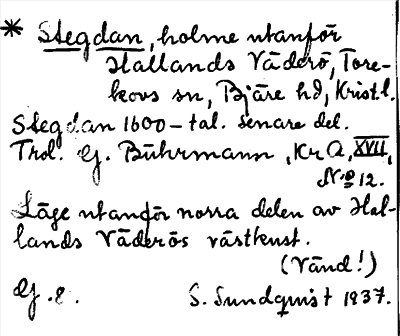 * Stegdan, holme utanför
Hallands Väderö, Tore-
kovs sn, Bjäre hd, Krist.l.
Stegdan 1600-tal. senare del.
Trol. Gj. Bührmann, Kr A, XVII,
No 12.
Läge utanför norra delen av Hal-
lands Väderös västkust.
(Vänd!)
S. Sundquist 1937.